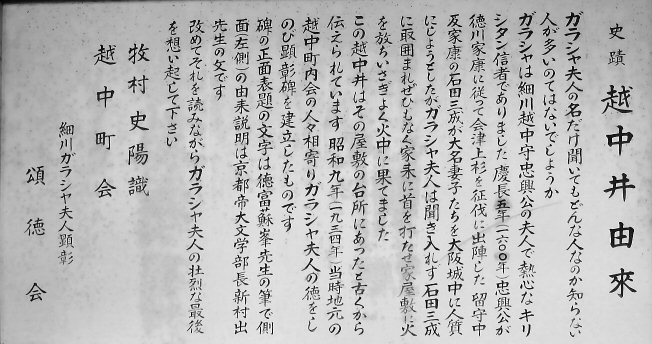 史蹟 越中井由來
ガラシャ夫人の名だけ聞いてもどんな人なのか知らない
人が多いのではないでしょうか
ガラシャは細川越中守忠興公の夫人で熱心なキリ
シタン信者でありました 慶長五年(一六〇〇年)忠興公が
徳川家康に従って会津上杉を征伐に出陣した 留守中
反家康の石田三成が大名妻子たちを大阪城中に人質
にしようとしたが ガラシャ夫人は聞き入れず 石田三成
に取囲まれぜひもなく家来に首を打たせ家屋敷に火
を放ちいさぎよく火中に果てました
この越中井はその屋敷の台所にあったと古くから
伝えられています 昭和九年(一九三四年)当時地元の
越中町内会の人々相寄りガラシャ夫人の徳をし
のび顕彰碑を建立したものです
碑の正面表題の文字は徳富蘇峯先生の筆で側
面(左側)の由来説明は京都帝大文学部長新村出
先生の文です
改めてそれを読みながらガラシャ夫人の壮烈な最後
を想い起して下さい
牧村史陽識
越中町会
細川ガラシャ夫人顕彰
頌徳会